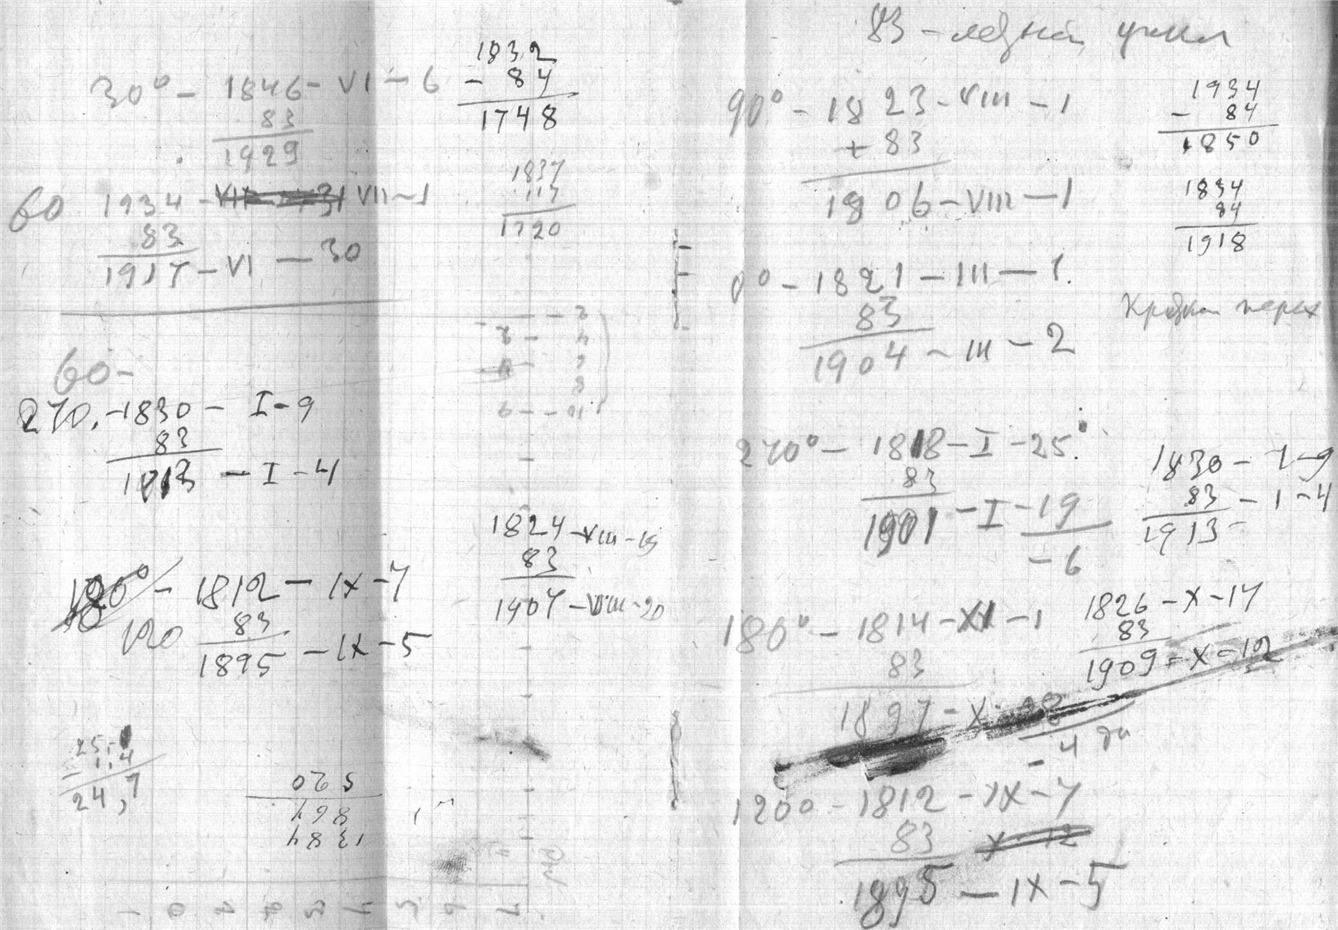 30° - 1846 - VI - 6
83
1929
60 1934 - VII - 1
83
1917 - VI - 30
60 -
270. - 1830 - I - 9
83
1913 - I - 4
- 1812 - IX - 7
120 83
1895 - IX - 5
24,7
1384
864
520
1832
- 84
1748
1837
117
1720
1824 - VIII - 19
83
1907 - VIII - 20
83 - летний цикл
90° - 1823 - VIII - 1
+ 83
1906 - VIII - 1
0° - 1821 - III - 1.
83
1904 - III - 2
270° - 1818 - I - 25
83
1901 - I - 19
- 6
180° - 1814 - XI - 1
83
1897 - X -
1200 - 1812 - IX - 7
83
1895 - IX - 5
1934
- 84
1850
1834
84
1918
1830 - I - 9
83 - I - 4
1913 -
1826 - X - 17
83
1909 = X - 12